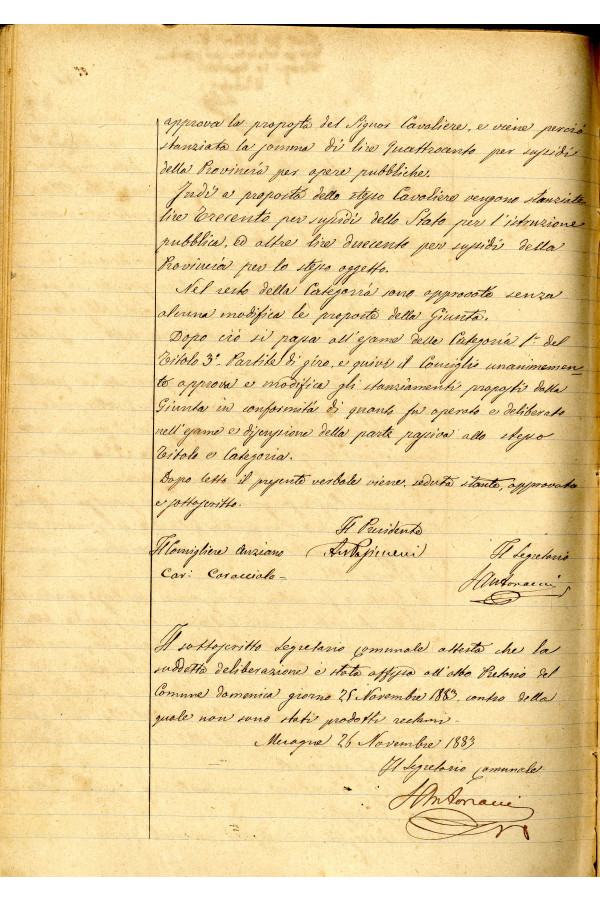 approva la proposta del Signor Cavaliere, e viene perciò
stanziata la somma di lire Quattrocento per sussidi
della Provincia per opere pubbliche.
Indi a proposta dello stesso Cavaliere vengono stanziate
lire Trecento per sussidi dello Stato per l'istruzione
pubblica, ed altre lire duecento per sussidi della
Provincia per lo stesso oggetto.
Nel resto della Categoria sono approvate senza
alcuna modifica le proposte della Giunta.
Dopo ciò si passa all'esame della Categoria 1ª del
Titolo 3º Partite di giro, e quivi il Consiglio unanimemen-
te approva e modifica gli stanziamenti proposti dalla
Giunta in conformità di quanto fu operato e deliberato
nell'esame e discussione della parte passiva allo stesso
Titolo e Categoria.
Dopo letto il presente verbale viene, seduta stante, approvato
e sottoscritto.
Il Presidente
Il Consigliere Anziano
Il Segretario
Car: Caracciolo
Il sottoscritto Segretario Comunale attesta che la
suddetta deliberazione è stata affissa all'albo Pretorio del
Comune domenica giorno 25 Novembre 1883, contro della
quale non sono stati prodotti reclami.
26 Novembre 1883
Il Segretario Comunale